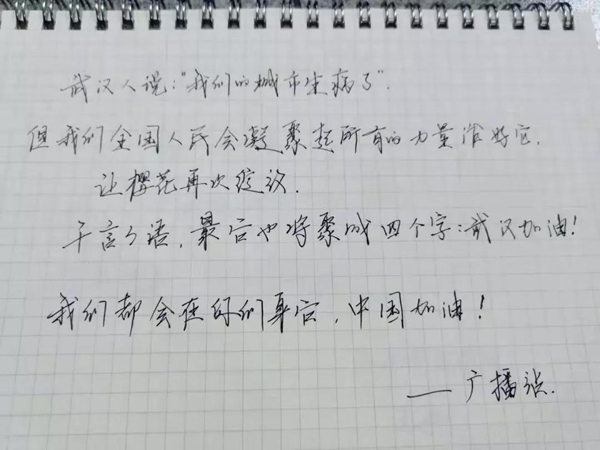 武汉人说:"我们的城市生病了".
但我们全国人民会凝聚起所有的力量治好它.
让樱花再次绽放.
千言万语,最后也将聚成四个字:武汉加油!
我们都会在你们身后,中国加油!
——广播站.